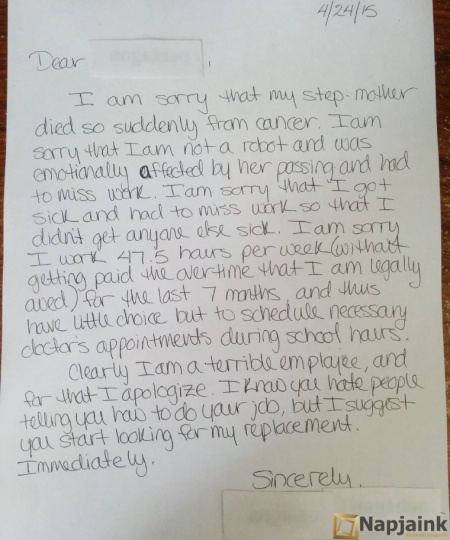 4/24/15
Dear ,
I am sorry that my step-mother
died so suddenly from cancer. I am
sorry that I am not a robot and was
emotionally affected by her passing and had
to miss work. I am sorry that I got
sick and had to miss work so that I
didn't get anyone else sick. I am sorry
I work 47.5 hours per week (without
getting paid the overtime that I am legally
owed) for the last 7 months and thus
have little choice but to schedule necessary
doctor's appointments during school hours.
Clearly I am a terrible employee, and
for that I apologize. I know you hate people
telling you how to do your job, but I suggest
you start looking for my replacement.
Immediately.
Sincerely,
Napjaink